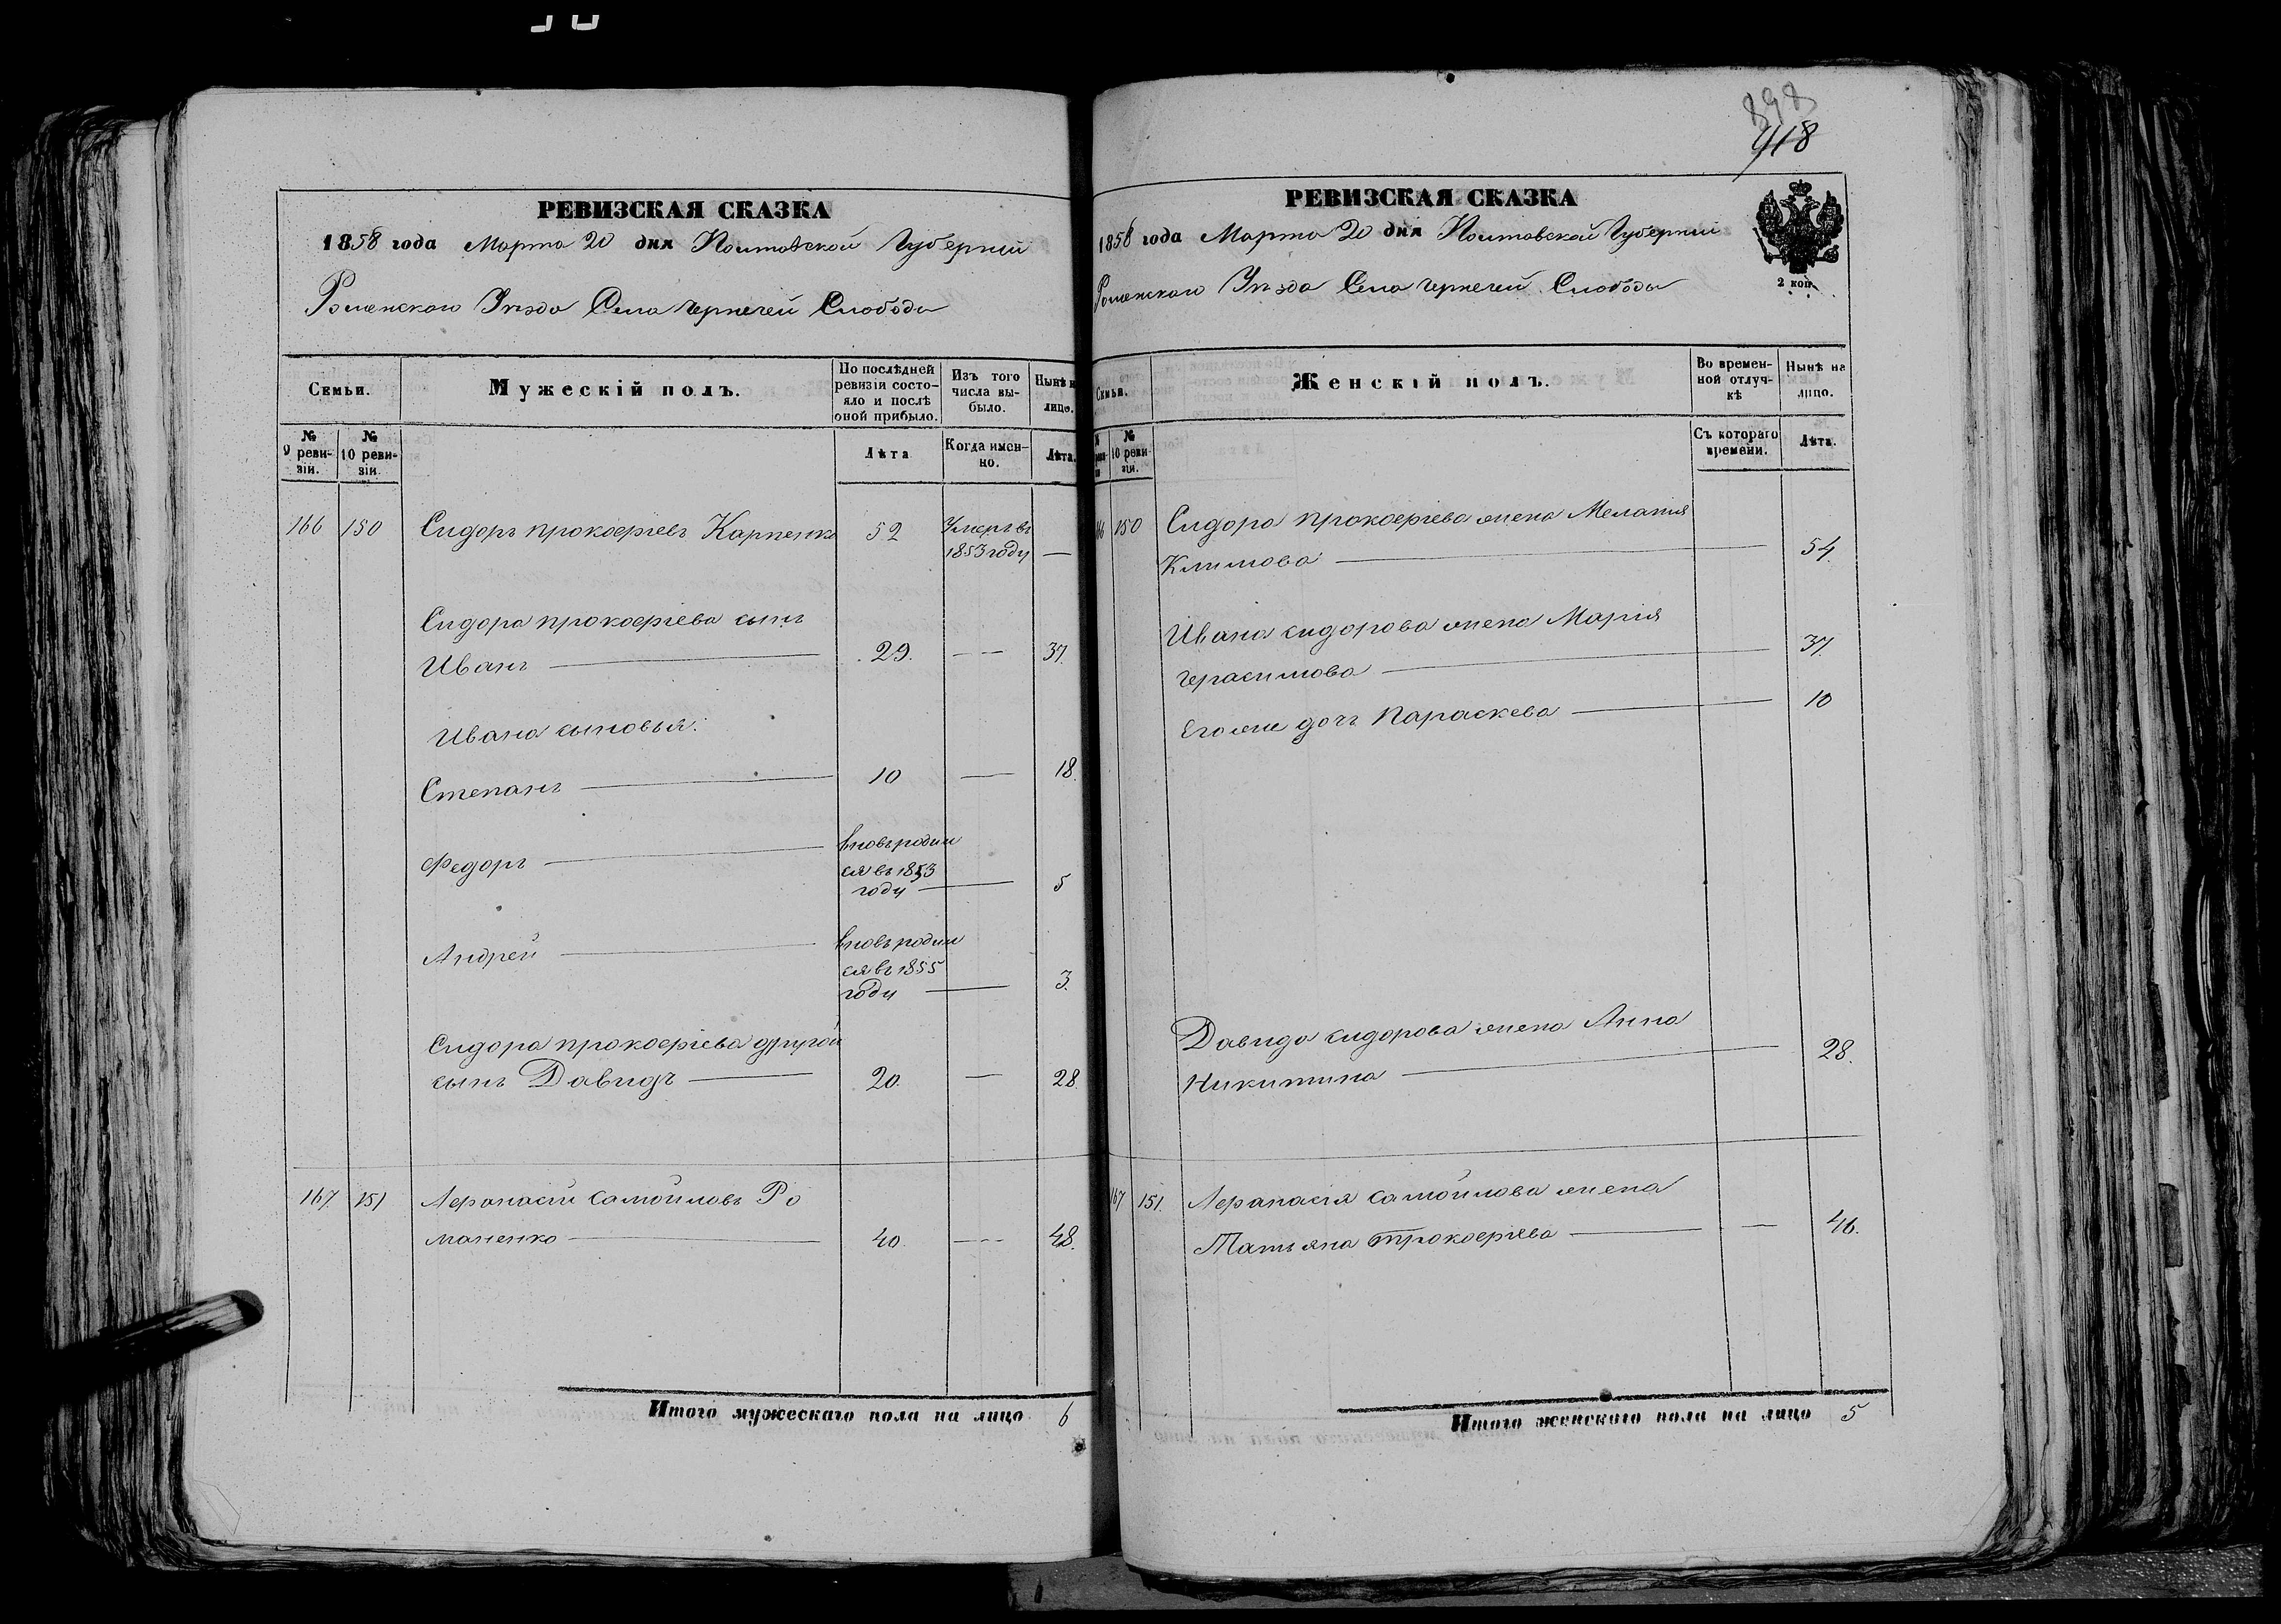 898
418
РЕВИЗСКАЯ СКАЗКА
1858 года Марта 20 дня Полтавской Губерніи
Роменского Уезда Села Чернечей Слободы
Семьи.
Мужескій полъ.
По послѣдней ревизіи состояло и послѣ оной прибыло.
Изъ того числа выбыло.
Нынѣ на лицо.
№ 9 ревизіи.
№ 10 ревизіи.
Лѣта
Когда именно.
Лѣта.
166 150 Сидоръ прокофіевъ Карпенко 52 Умеръ въ
1853 году —
Сидора прокофіева сынъ
Иванъ — 29. — — 37.
Ивана сыновья:
Степанъ — 10 — 18.
Федоръ — вновь родил
ся въ 1853
году — 5
Андрей — вновь родил
ся въ 1855
году — 3.
Сидора прокофіева другой
сынъ Давидъ — 20. — 28.
167. 151 Афанасій самойловъ Ро
маненко — 40. — 48.
Итого мужескаго пола на лицо 6
РЕВИЗСКАЯ СКАЗКА
1858 года Марта 20 дня Полтавской Губерніи
Роменского Уезда Села Чернечей Слободы
2 коп.
Семьи.
Женскій полъ.
Во временной отлучкѣ
Нынѣ на лицо.
№ 10 ревизіи.
Съ котораго времени.
Лѣта.
166 150 Сидора прокофіева жена Меланія
Климова — 54.
Ивана сидорова жена Марія
Герасимова — 37.
Его же дочъ Параскева — 10
Давида сидорова жена Анна
Никитина — 28.
167 151. Афанасія самойлова жена
Татьяна Прокофіева — — 46.
Итого женскаго пола на лицо 5